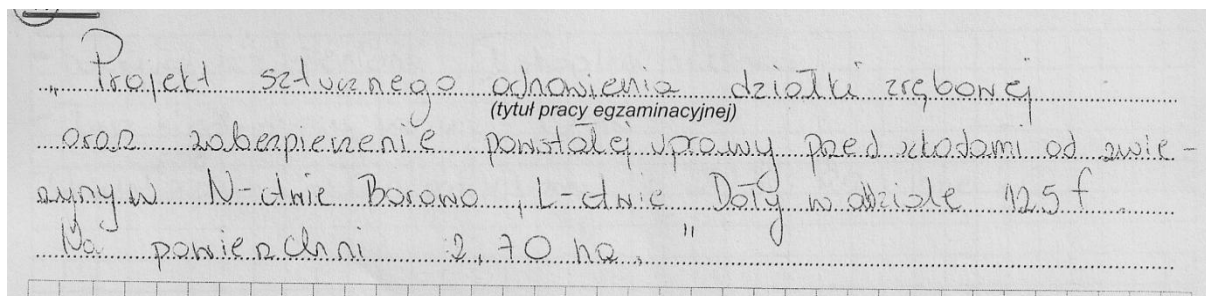 „Projekt sztucznego odnowienia działki zrębowej
(tytuł pracy egzaminacyjnej)
oraz zabezpieczenie powstałej uprawy przed szkodami od zwie-
rzyny w N-ctwie Borowo, L-ctwie Doły w oddziale 125 f.
Na powierzchni 2,70 ha."